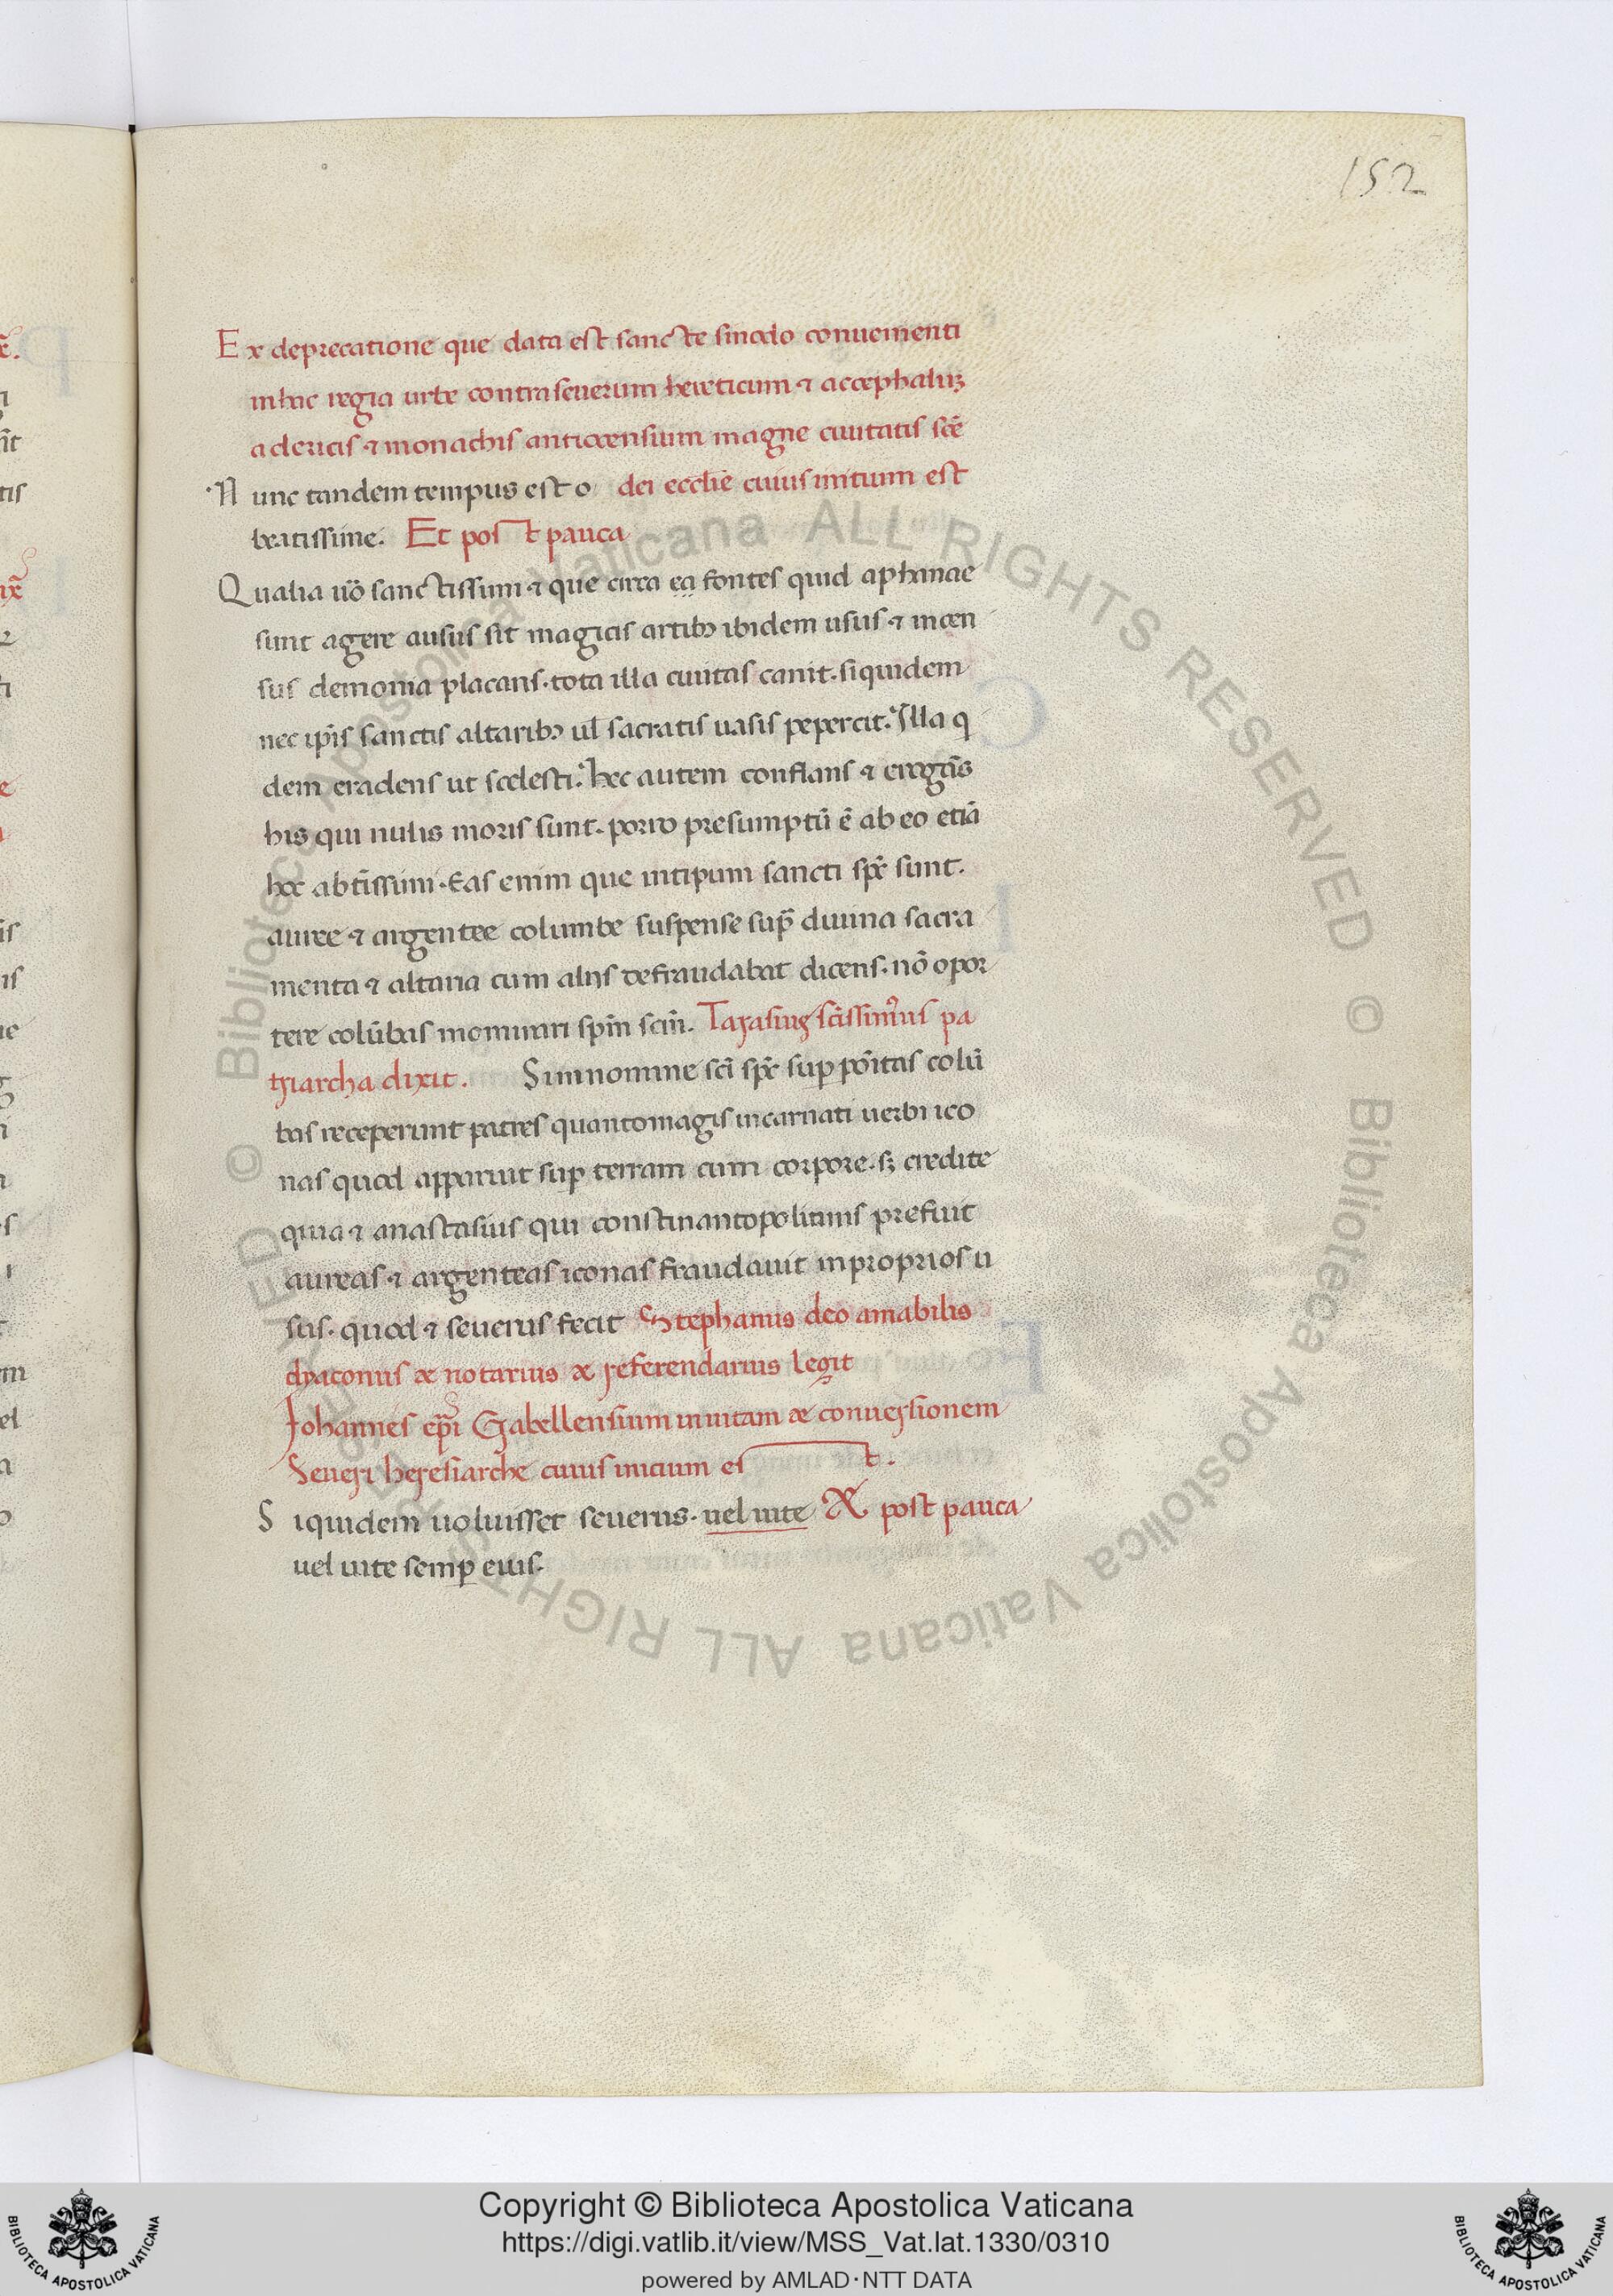 152
Ex deprecatione que data est sancte sinodo conuenienti
in hac regia urbe contra seuerum hereticum ⁊ accephalũ
a clericis ⁊ monachis antiocensium magne ciuitatis scẽ
Nunc tandem tempus est o dei ecclẽ cuius initium est
beatissime. Et post pauca
Qualia uõ sanctissum ⁊ que circa ea fontes quid aphanae
sunt agere ausus sit magicis artibꝫ ibidem usus ⁊ incen
sus demonia placans. tota illa ciuitas canit. siquidem
nec ip̃is sanctis altaribꝫ ul̃ sacratis uasis pepercit. Illa q
dem eradens ut scelesti. hec autem conflans ⁊ erogãs
his qui nulis moris sunt. porro presumptũ ẽ ab eo etiã
hoc abt̃issimi. Eas enim que in tipum sancti sp̃c sunt.
auree ⁊ argentee columbe suspense sup̃ diuina sacra
menta ⁊ altaria cum alijs defraudabat dicens. nõ opor
tere colũbas mominari sp̃m scm̃. Tarasius sc̃issimus pa
triarcha dixit. Si in nomine sci sp̃c suppõitas colũ
bas receperunt patres quanto magis incarnati uerbi ico
nas quod apparuit sup terram cum corpore. sꝫ credite
quia ⁊ anastasius qui constinantopolitanis prefuit
aureas ⁊ argenteas iconas fraudauit in proprios u
sus. quod ⁊ seuerus fecit Stephanus deo amabilis
dyaconus æ notarius æ referendarius legit
Johannes ep̃i Gabellensium in uitam æ conuersionem
Seueri heresiarche cuius inicium est.
Siquidem uoluisset seuerus. uel uite Æ post pauca
uel uite semp eius.
© Biblioteca Apostolica Vaticana ALL RIGHTS RESERVED © Biblioteca Apostolica Vaticana ALL RIGHTS RESERVED
Copyright © Biblioteca Apostolica Vaticana
https://digi.vatlib.it/view/MSS_Vat.lat.1330/0310
powered by AMLAD・NTT DATA
BIBLIOTECA APOSTOLICA VATICANA
BIBLIOTECA APOSTOLICA VATICANA